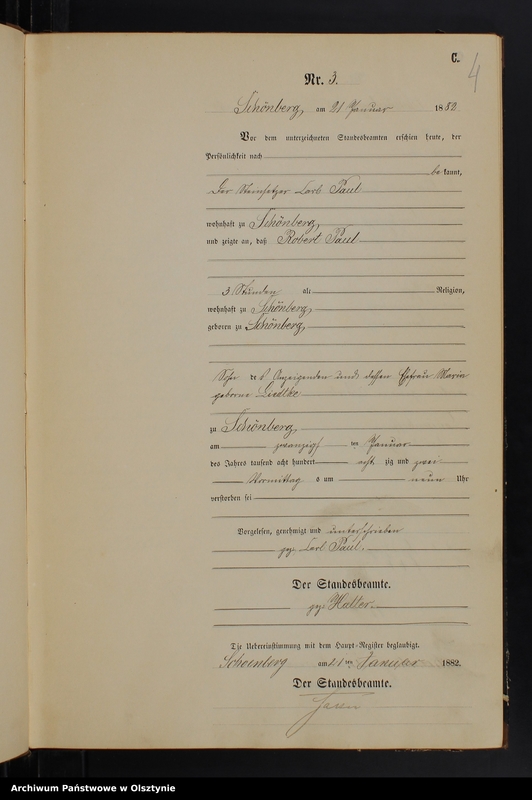 C.
4
Nr. 3.
Schönberg, am 21 Januar 1882
Vor dem unterzeichneten Standesbeamten erschien heute, der
Persönlichkeit nach
bekannt,
Der Steinsetzer Carl Paul
wohnhaft zu Schönberg,
und zeigte an, daß Robert Paul
3 Stunden alt Religion,
wohnhaft zu Schönberg,
geboren zu Schönberg,
Sohn des Anzeigenden und dessen Ehefrau Maria
geborne Liedtke
zu Schönberg,
am zwanzigsten Januar
des Jahres tausend acht hundert achtzig und zwei
Vormittags um neun Uhr
verstorben sei
Vorgelesen, genehmigt und unterschrieben
gez. Carl Paul.
Der Standesbeamte.
gez.
Die Uebereinstimmung mit dem Haupt-Register beglaubigt.
Schoenberg am 21ten Januar 1882.
Der Standesbeamte.
Archiwum Państwowe w Olsztynie